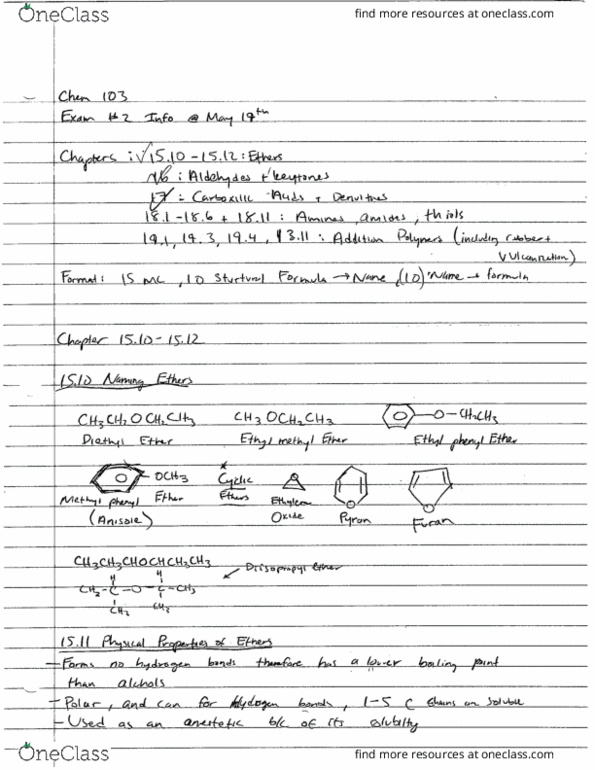 OneClass
find more resources at oneclass.com
Chem 103
Exam #2 Info @ May 19th
Chapters : √15.10 - 15.12 : Ethers
16 : Aldehydes + keytones
17 : Carboxillic Acids +
18.1 - 18.6 + 18.11 : Amines, amides, thiols
19.1, 19.3, 19.4, 13.11 : Addition Polymers (including rubber +
Vulcanization)
Format : 15 MC, 10 Sturtural Formula → Name, (10) Name → formula
Chapter 15.10 - 15.12
15.10 Naming Ethers
CH3CH2OCH2CH3 CH3OCH2CH3 O-CH2CH3
Diethyl Ether Ethyl methyl Ether Ethyl phenyl Ether
OCH3 * Cyclic Ethers
Methyl phenyl Ether Ethylene Oxide Pyran Furan
(Anisole)
CH3CH3CHOCHCH3CH3 Diisopropyl Ether
H H
CH3-C-O-C-CH3
CH3 CH3
15.11 Physical Properties of Ethers
- Forms no hydrogen bonds therefore has a lower boiling point
than alchols
- Polar, and can for Hydogen bonds, 1-5 C Chains are soluble
- Used as an b/c of its
OneClass
find more resources at oneclass.com